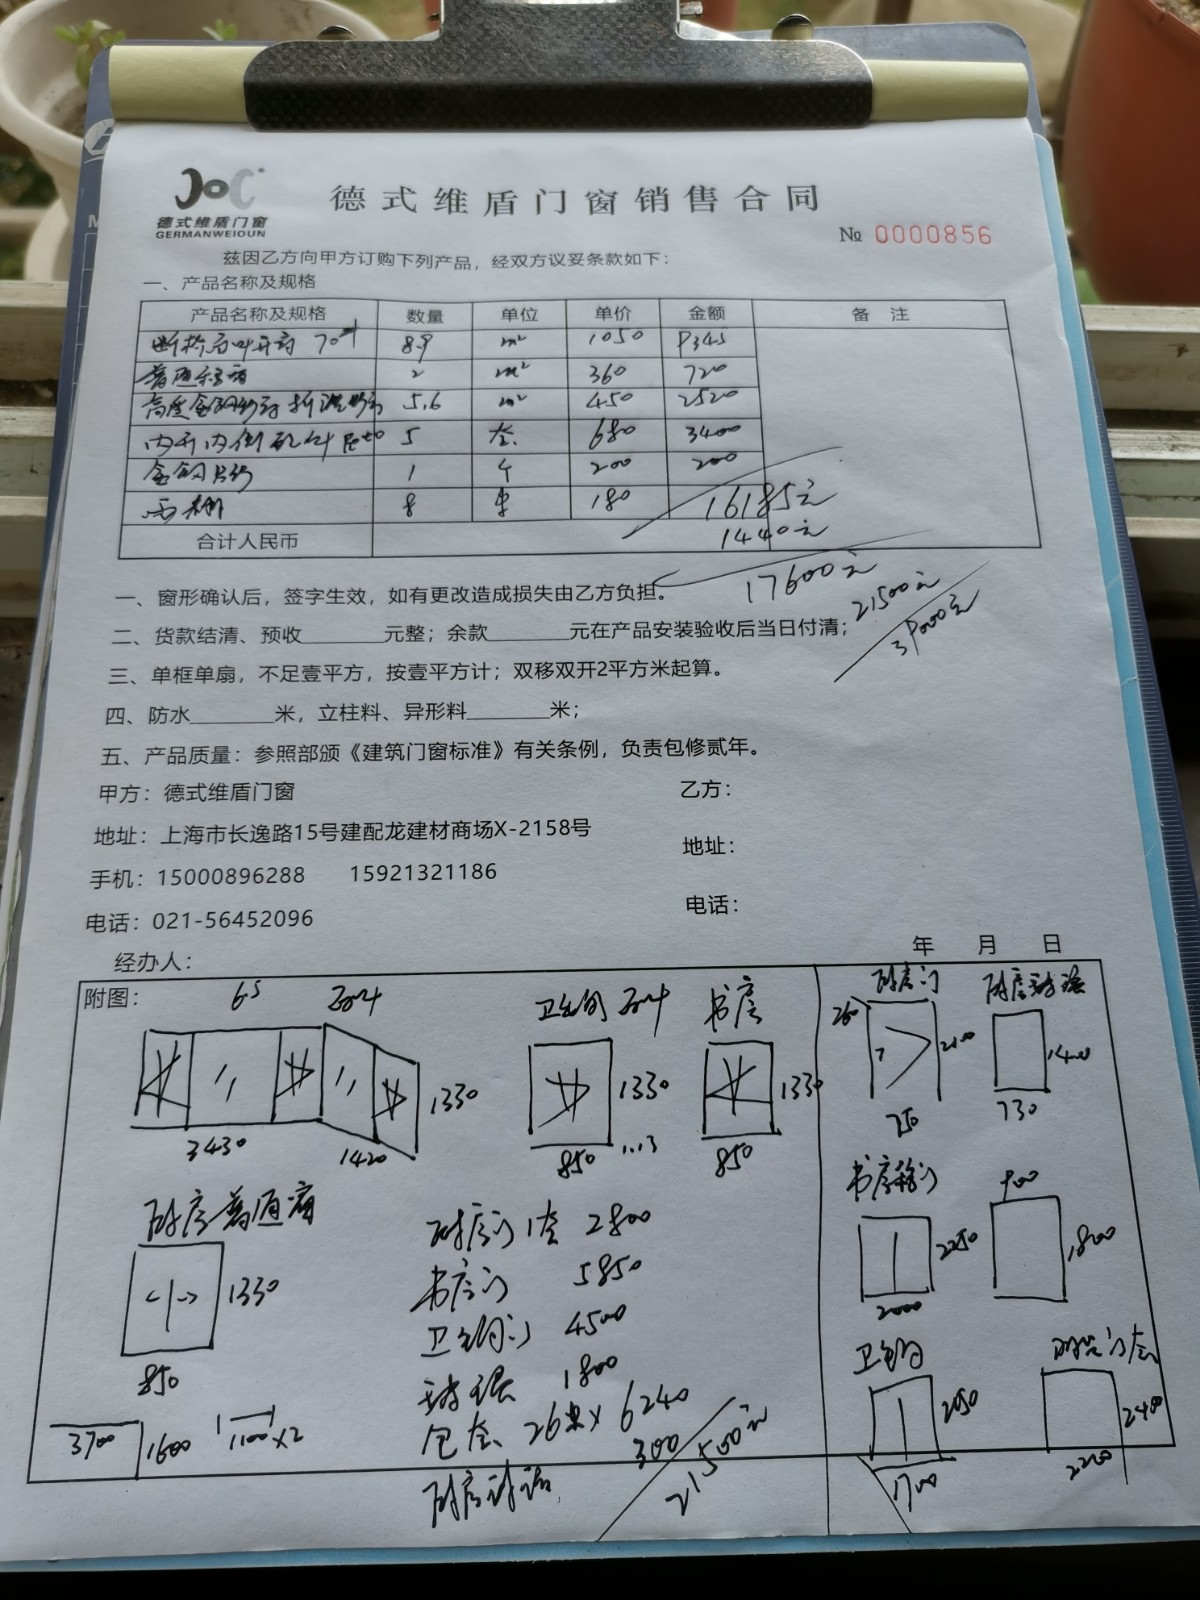 JOC
德式维盾门窗
GERMANWEIOUN
德式维盾门窗销售合同
№ 0000856
兹因乙方向甲方订购下列产品，经双方议妥条款如下：
一、产品名称及规格
产品名称及规格 数量 单位 单价 金额 备 注
8.9 m² 1050 9345
2 m² 360 720
5.6 m² 450 2520
内开内倒 5 套 680 3400
金钢 1 个 200 200
雨棚 8 180 16185元
合计人民币 1440元
17600元
21500元
39000元
一、窗形确认后，签字生效，如有更改造成损失由乙方负担。
二、货款结清、预收________元整；余款________元在产品安装验收后当日付清；
三、单框单扇，不足壹平方，按壹平方计；双移双开2平方米起算。
四、防水________米，立柱料、异形料________米；
五、产品质量：参照部颁《建筑门窗标准》有关条例，负责包修贰年。
甲方：德式维盾门窗 乙方：
地址：上海市长逸路15号建配龙建材商场X-2158号 地址：
手机：15000896288 15921321186
电话：021-56452096 电话：
经办人： 年 月 日
附图：
卫生间 书房 厨房门
260
1330 1330 1330 2100 1400
3430 1420 850 850 750 730
1.13
厨房普通窗
书房移门 900
厨房门1套 2800
1330 书房门 5850 2250 1800
850 卫生间门 4500 2000
1800 卫生间
包套 26米× 6240 2050 2400
3700 1600 1100×2 300 1700 2200
21500元